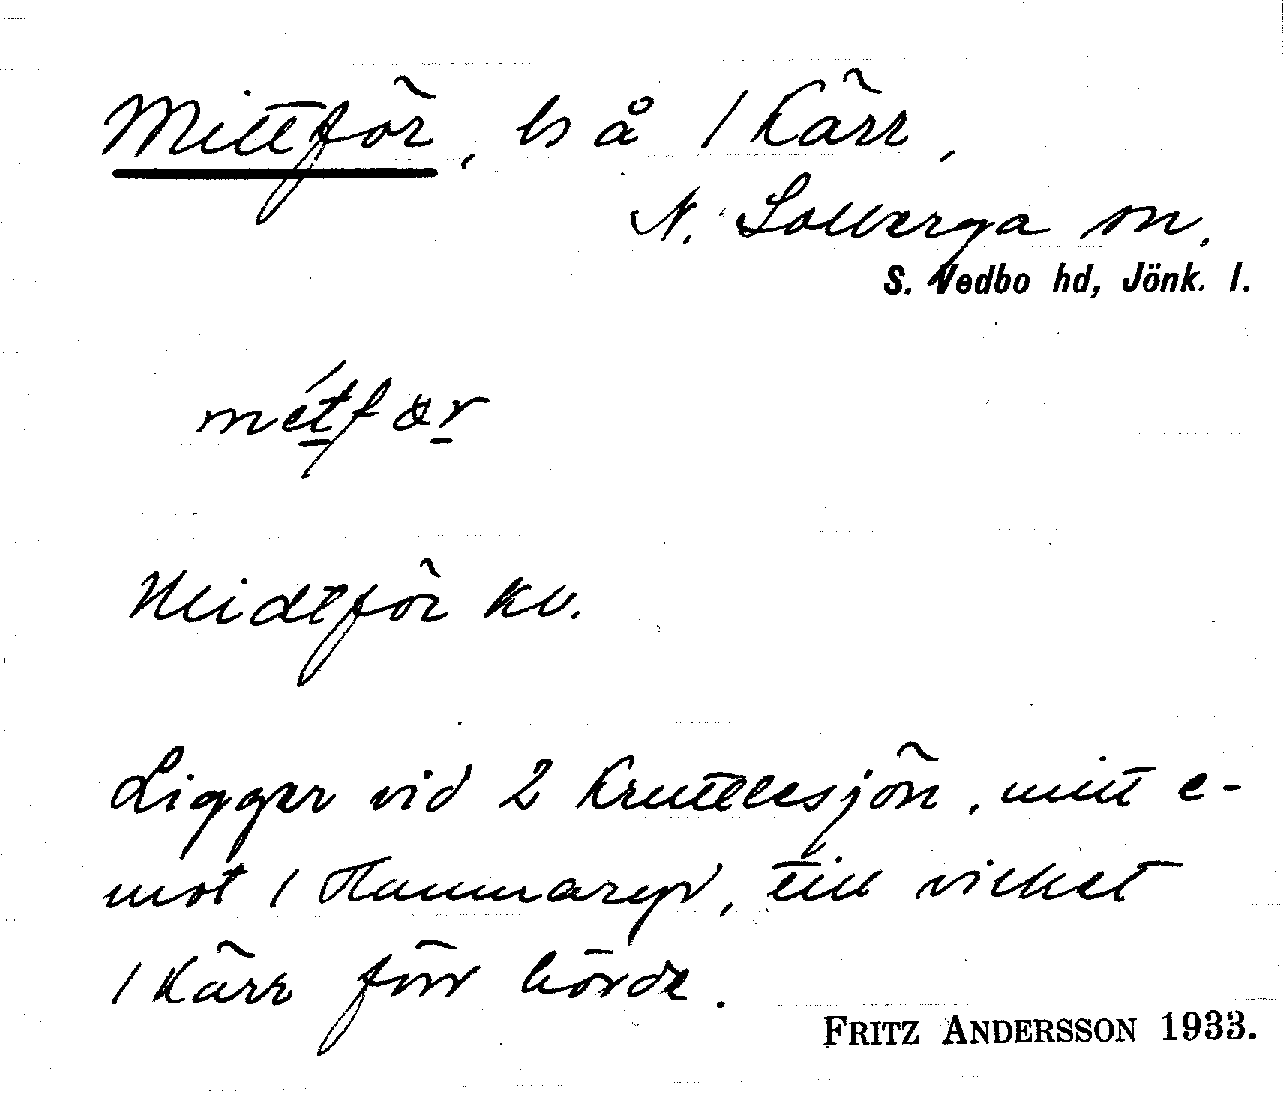 Mittför, ls å 1 Kärr,
N. Solberga sn.
S. Vedbo hd, Jönk. l.
métfør
Midtför kv.
Ligger vid 2 Kruttlesjön, mitt e-
mot 1 Hammaryd, till vilket
1 Kärr förr hörde.
FRITZ ANDERSSON 1933.